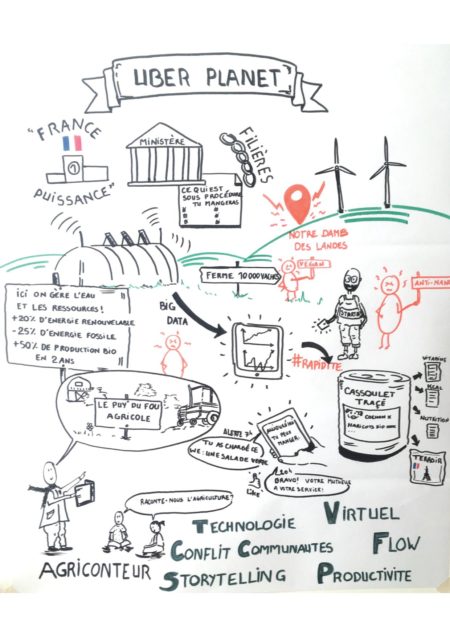 UBER PLANET
"FRANCE
PUISSANCE"
1
MINISTÈRE
FILIÈRES
CE QUI EST
SOUS PROCÉDURE
TU MANGERAS
NOTRE DAME
DES LANDES
VEGAN
FERME 10 000 VACHES
ANTI-MAN
ICI ON GÈRE L'EAU
ET LES RESSOURCES!
+20% D'ÉNERGIE RENOUVELABLE
-25% D'ÉNERGIE FOSSILE
+50% DE PRODUCTION BIO
EN 2 ANS
BIG
DATA
#RAPIDITÉ
CASSOULET
TRAÇÉ
COCHON X
HARICOTS BIO
VITAMINE
NUTRITION
TERROIR
LE PUY DU FOU
AGRICOLE
AUJOURD'HUI
TU PEUX
MANGER
ALERTE
TU AS CHARGÉ CE
WE: UNE SALADE VERTE
BRAVO! VOTRE MUTUELLE
A VOTRE SERVICE!
RACONTE-NOUS L'AGRICULTURE?
AGRICONTEUR
TECHNOLOGIE
VIRTUEL
CONFLIT COMMUNAUTÉS
FLOW
STORYTELLING
PRODUCTIVITE